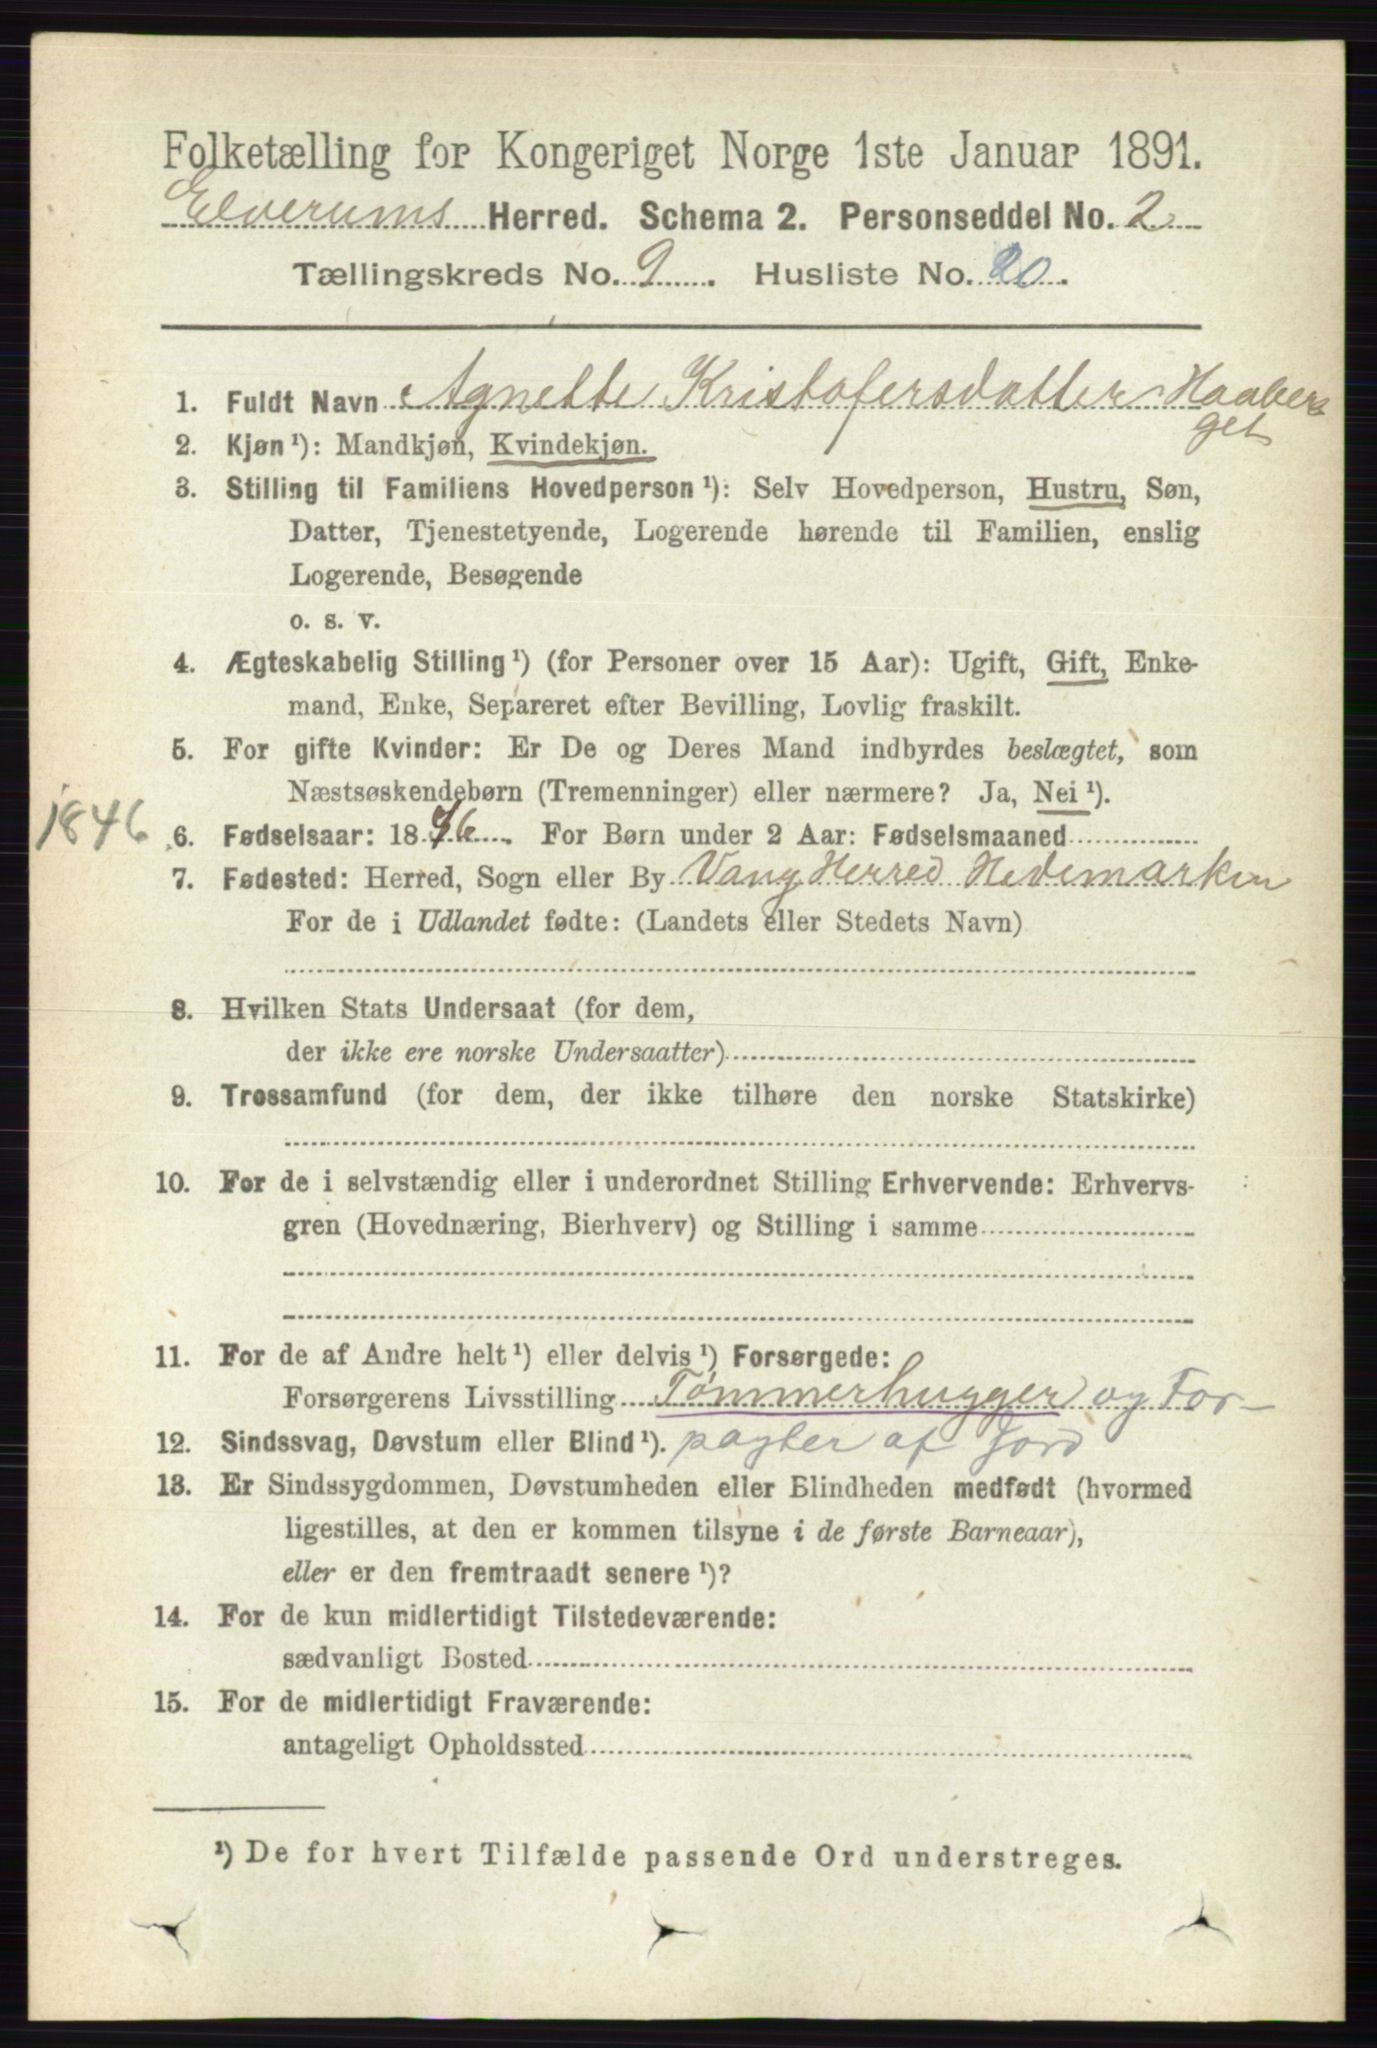 Folketælling for Kongeriget Norge 1ste Januar 1891.
Elverums Herred. Schema 2. Personseddel No. 2
Tællingskreds No. 9. Husliste No. 20.
1. Fuldt Navn Agnette Kristofersdatter Haaber-
get
2. Kjøn ¹): Mandkjøn, Kvindekjøn.
3. Stilling til Familiens Hovedperson ¹): Selv Hovedperson, Hustru, Søn,
Datter, Tjenestetyende, Logerende hørende til Familien, enslig
Logerende, Besøgende
o. s. v.
4. Ægteskabelig Stilling ¹) (for Personer over 15 Aar): Ugift, Gift, Enke-
mand, Enke, Separeret efter Bevilling, Lovlig fraskilt.
5. For gifte Kvinder: Er De og Deres Mand indbyrdes beslægtet, som
Næstsøskendebørn (Tremenninger) eller nærmere? Ja, Nei ¹).
1846 6. Fødselsaar: 1846. For Børn under 2 Aar: Fødselsmaaned
7. Fødested: Herred, Sogn eller By Vang Herred Hedemarken
For de i Udlandet fødte: (Landets eller Stedets Navn)
8. Hvilken Stats Undersaat (for dem,
der ikke ere norske Undersaatter)
9. Trossamfund (for dem, der ikke tilhøre den norske Statskirke)
10. For de i selvstændig eller i underordnet Stilling Erhvervende: Erhvervs-
gren (Hovednæring, Bierhverv) og Stilling i samme
11. For de af Andre helt ¹) eller delvis ¹) Forsørgede:
Forsørgerens Livsstilling Tømmerhugger og For-
12. Sindssvag, Døvstum eller Blind ¹). pagter af Jord
13. Er Sindssygdommen, Døvstumheden eller Blindheden medfødt (hvormed
ligestilles, at den er kommen tilsyne i de første Barneaar),
eller er den fremtraadt senere ¹)?
14. For de kun midlertidigt Tilstedeværende:
sædvanligt Bosted
15. For de midlertidigt Fraværende:
antageligt Opholdssted
¹) De for hvert Tilfælde passende Ord understreges.